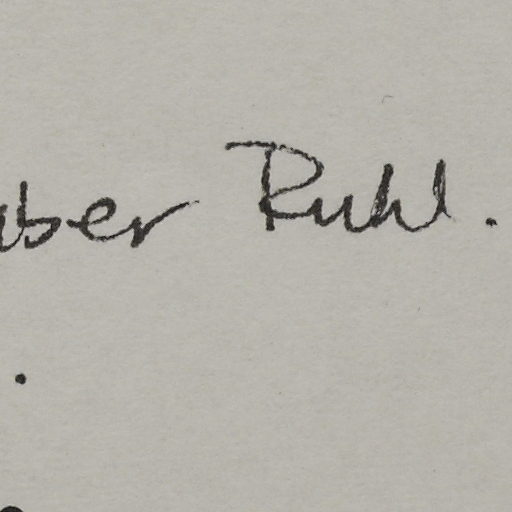 aber Ruhl.